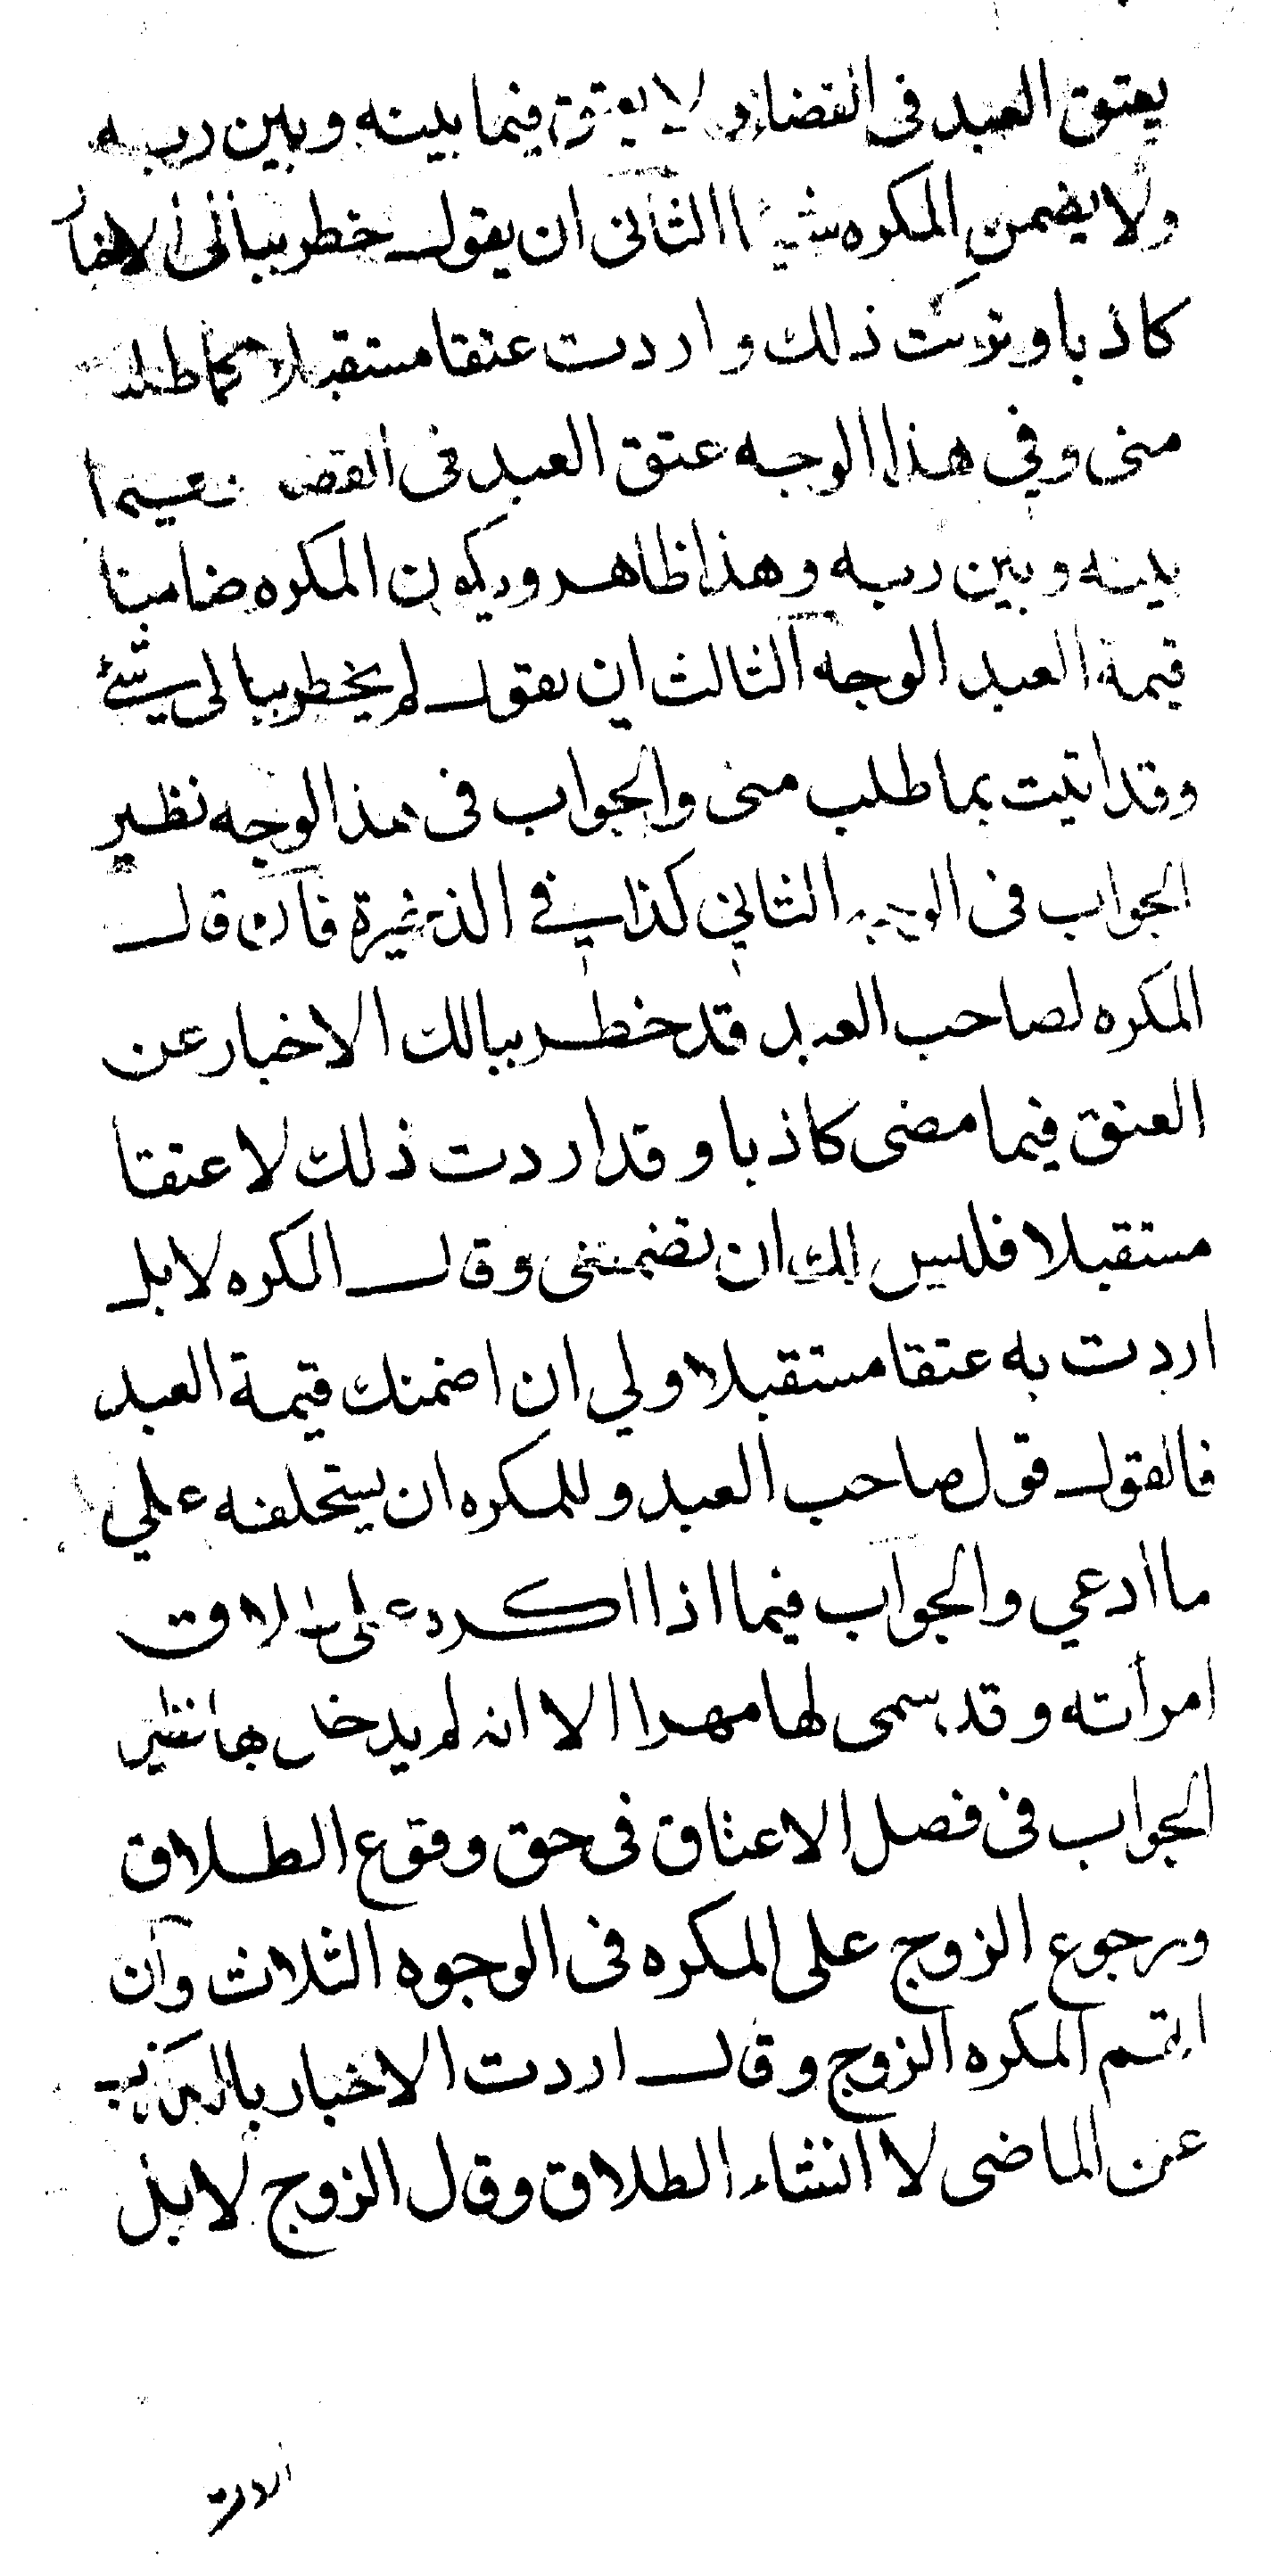 يعتق العبد في القضاء ولا يعتق فيما بينه وبين ربه
ولا يضمن المكره شيئا الثاني ان يقول خطر ببالي الاخبار
كاذبا ونويت ذلك واردت عتقا مستقبلا كما طلب
مني وفي هذا الوجه عتق العبد في القضا وفيما
بينه وبين ربه وهذا ظاهر ويكون المكره ضامنا
قيمة العبد الوجه الثالث ان يقول لم يخطر ببالي شئ
وقد اتيت بما طلب مني والجواب في هذا الوجه نظير
الجواب في الوجه الثاني كذا في الذخيرة فان قال
المكره لصاحب العبد قد خطر ببالك الاخبار عن
العتق فيما مضى كاذبا وقد اردت ذلك لا عتقا
مستقبلا فليس لك ان تضمنني وقال المكره لا بل
اردت به عتقا مستقبلا ولي ان اضمنك قيمة العبد
فالقول قول صاحب العبد وللمكره ان يستحلفه علي
ما ادعي والجواب فيما اذا اكره على طلاق
امرأته وقد سمى لها مهرا الا انه لم يدخل بها نظير
الجواب في فصل الاعتاق في حق وقوع الطلاق
ورجوع الزوج على المكره في الوجوه الثلاث وان
اتهم المكره الزوج وقال اردت الاخبار بالكذب
عن الماضي لا انشاء الطلاق وقال الزوج لا بل
اردت